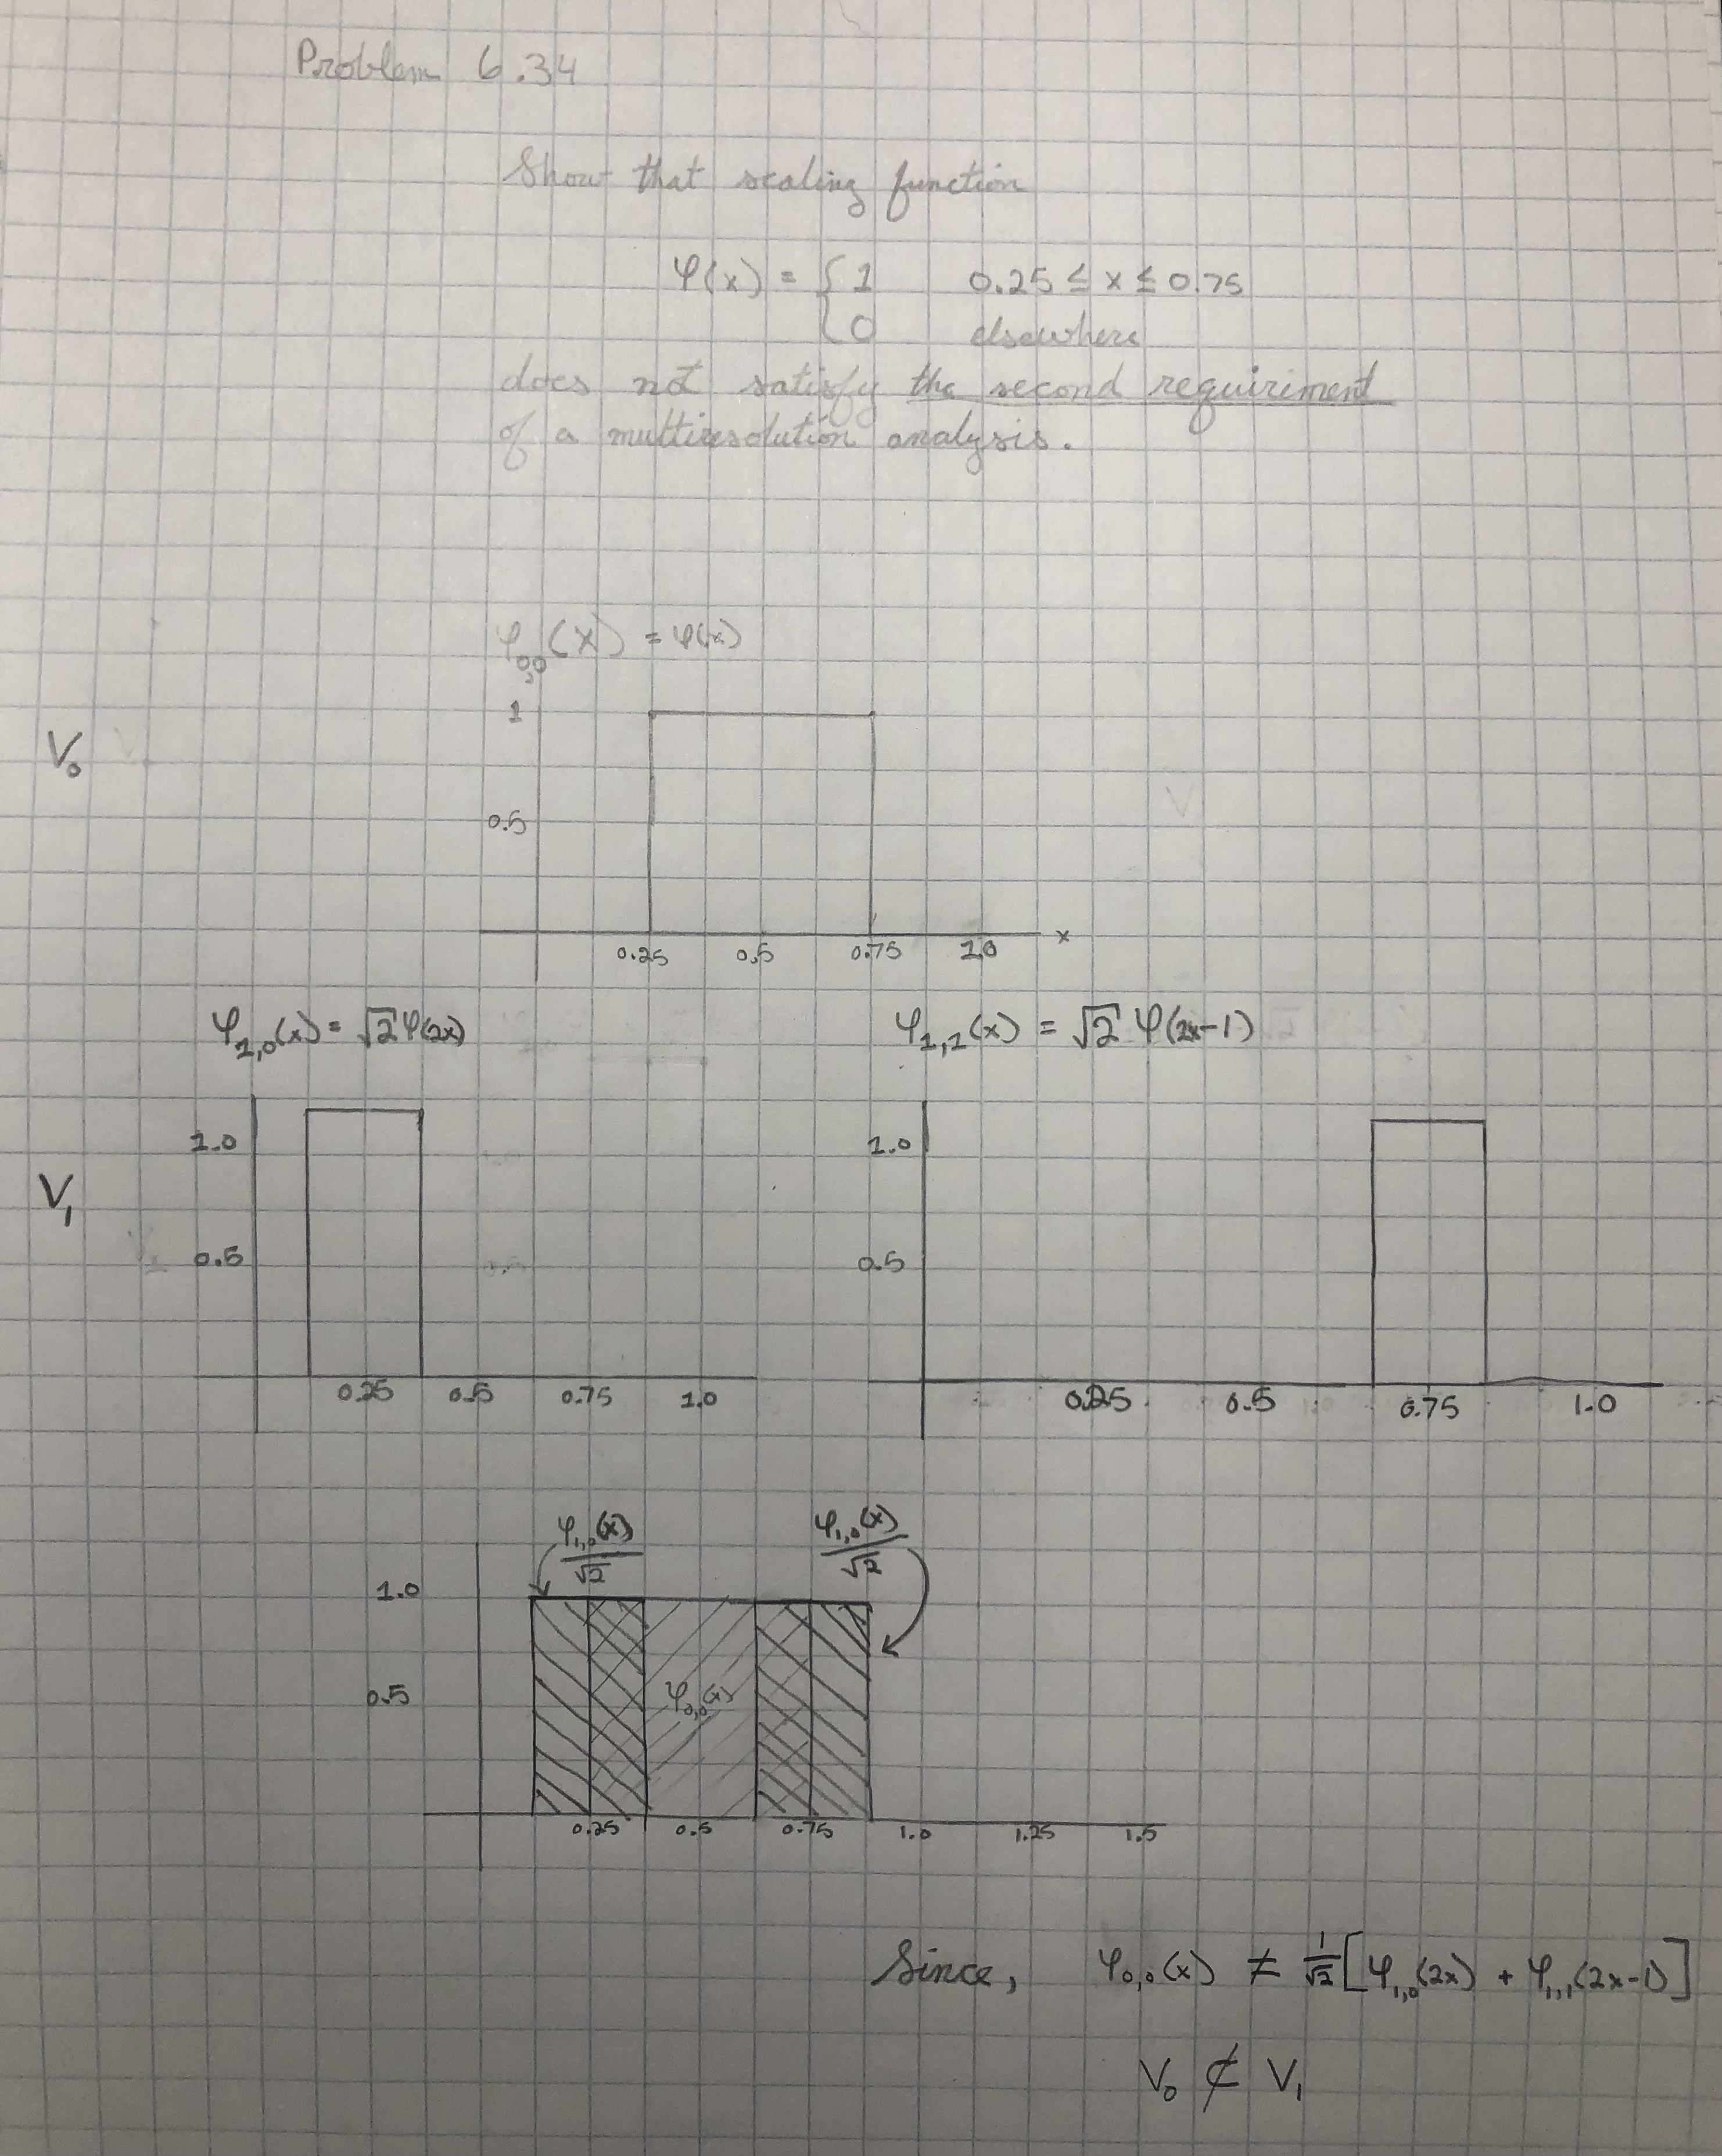 Problem 6.34
Show that scaling function
φ(x) = { 1 0.25 ≤ x ≤ 0.75
0 elsewhere
does not satisfy the second requiriment
of a multiresolution analysis.
φ0,0(x) = φ(x)
1
V0
0.5
0.25 0.5 0.75 1.0 x
φ1,0(x) = √2 φ(2x) φ1,1(x) = √2 φ(2x-1)
1.0 1.0
V1
0.5 0.5
0.25 0.5 0.75 1.0 0.25 0.5 0.75 1.0
φ1,0(x)/√2 φ1,0(x)/√2
1.0
0.5 φ0,0(x)
0.25 0.5 0.75 1.0 1.25 1.5
Since, φ0,0(x) ≠ 1/√2 [φ1,0(2x) + φ1,1(2x-1)]
V0 ⊄ V1